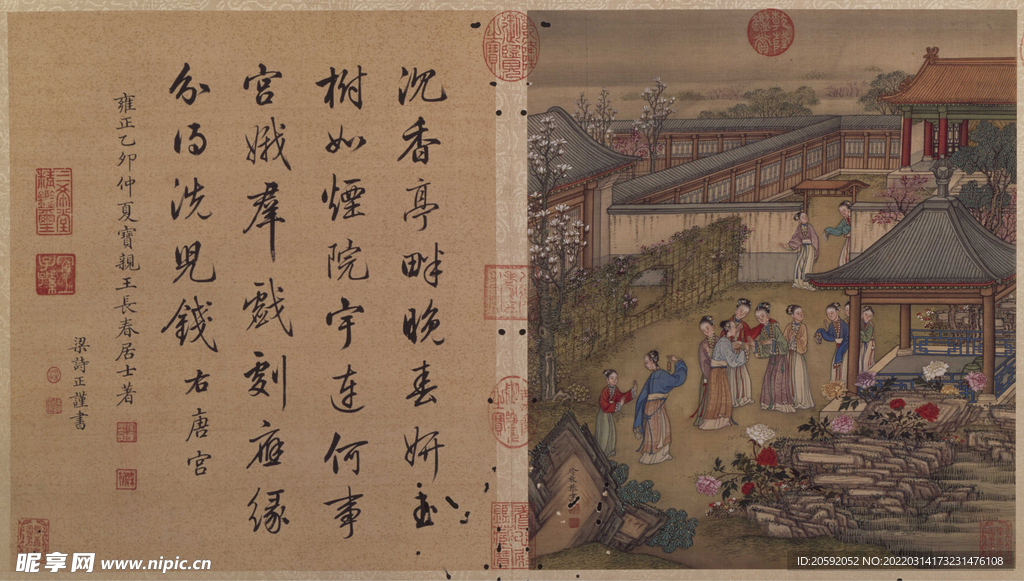 沉香亭畔晚春妍玉
樹如煙院宇連何事
宮娥羣戲劇應緣
分得洗兒錢右唐宮
雍正乙卯仲夏寶親王長春居士著
梁詩正謹書
昵享网 www.nipic.cn
ID:20592052 NO:20220314173231476108